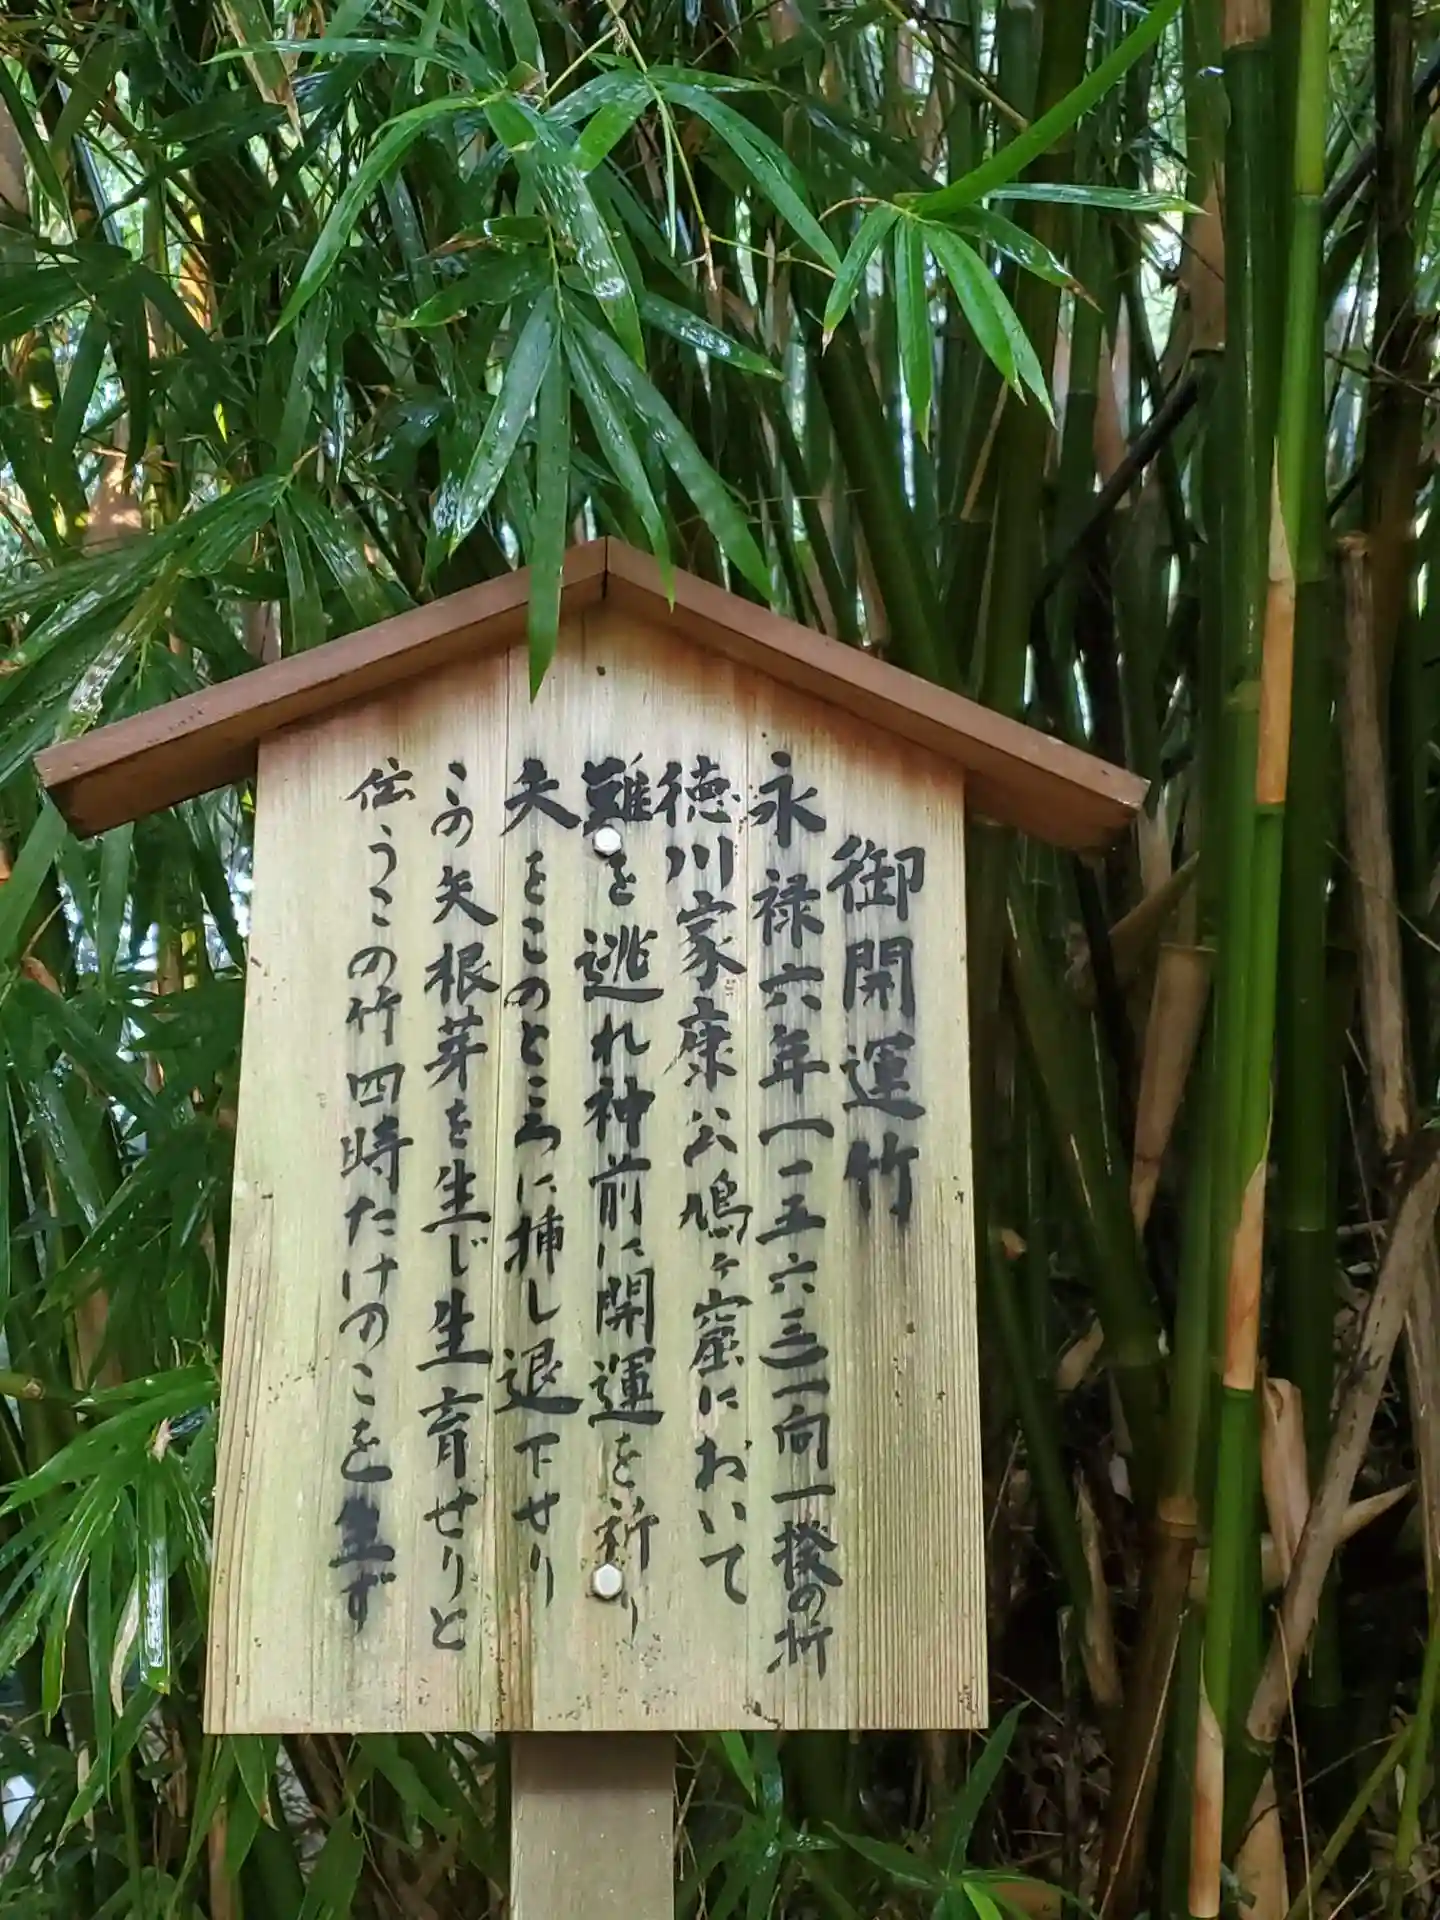 御開運竹
永禄六年一一五六三一向一揆の折
徳川家康公鳩ヶ窟において
難を逃れ神前に開運を祈り
矢をこのところに挿し退下せり
この矢根芽を生じ生育せりと
伝うこの竹四時たけのこを生ず